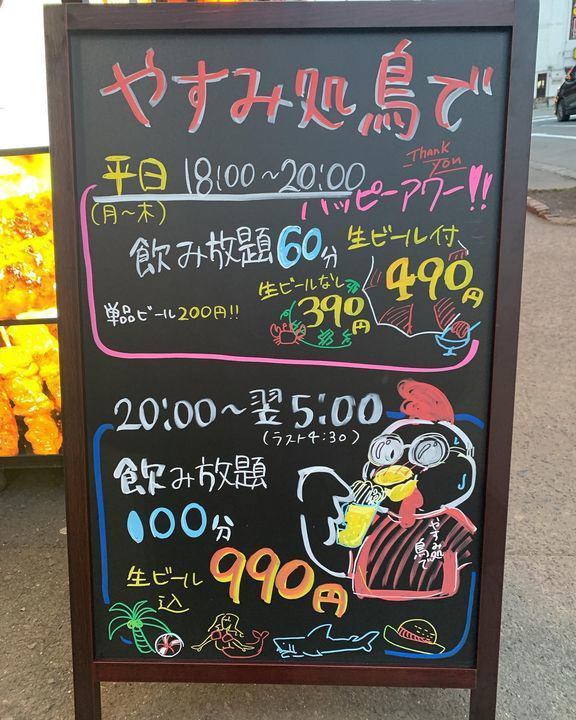 やすみ処 鳥で
Thank you
平日 18:00～20:00
(月～木)
ハッピーアワー!!
飲み放題60分
生ビール付 490円
生ビールなし 390円
単品ビール200円!!
20:00～翌5:00
(ラスト4:30)
飲み放題
100分
生ビール込
990円
やすみ処
鳥で